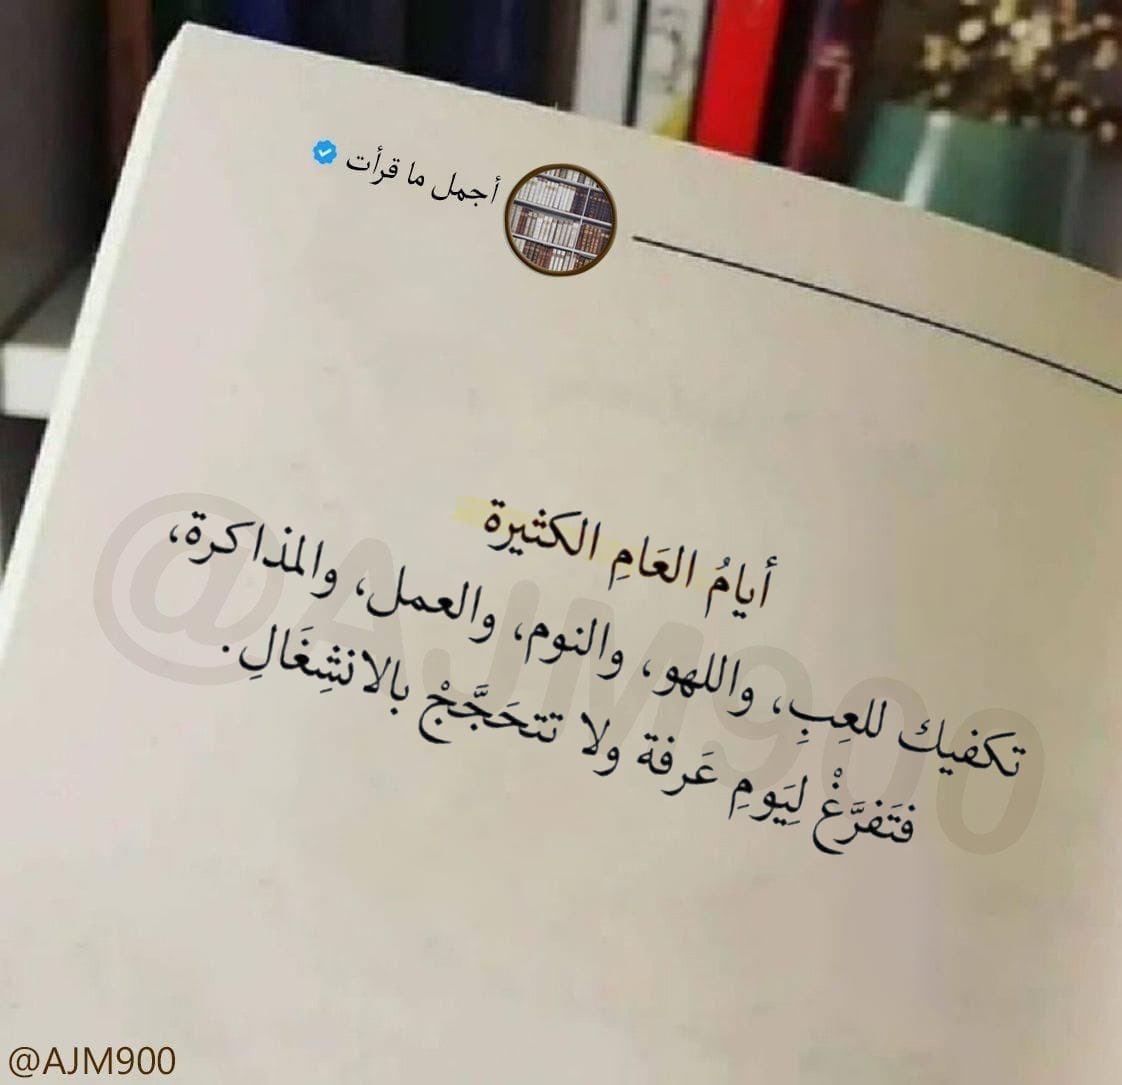 أجمل ما قرأت
أيامُ العَامِ الكثيرة
تكفيك للعِبِ، واللهو، والنوم، والعمل، والمذاكرة،
فتَفرَّغْ لِيَومِ عَرفة ولا تتحَجَّجْ بالانشِغَالِ.
@AJM900
@AJM900